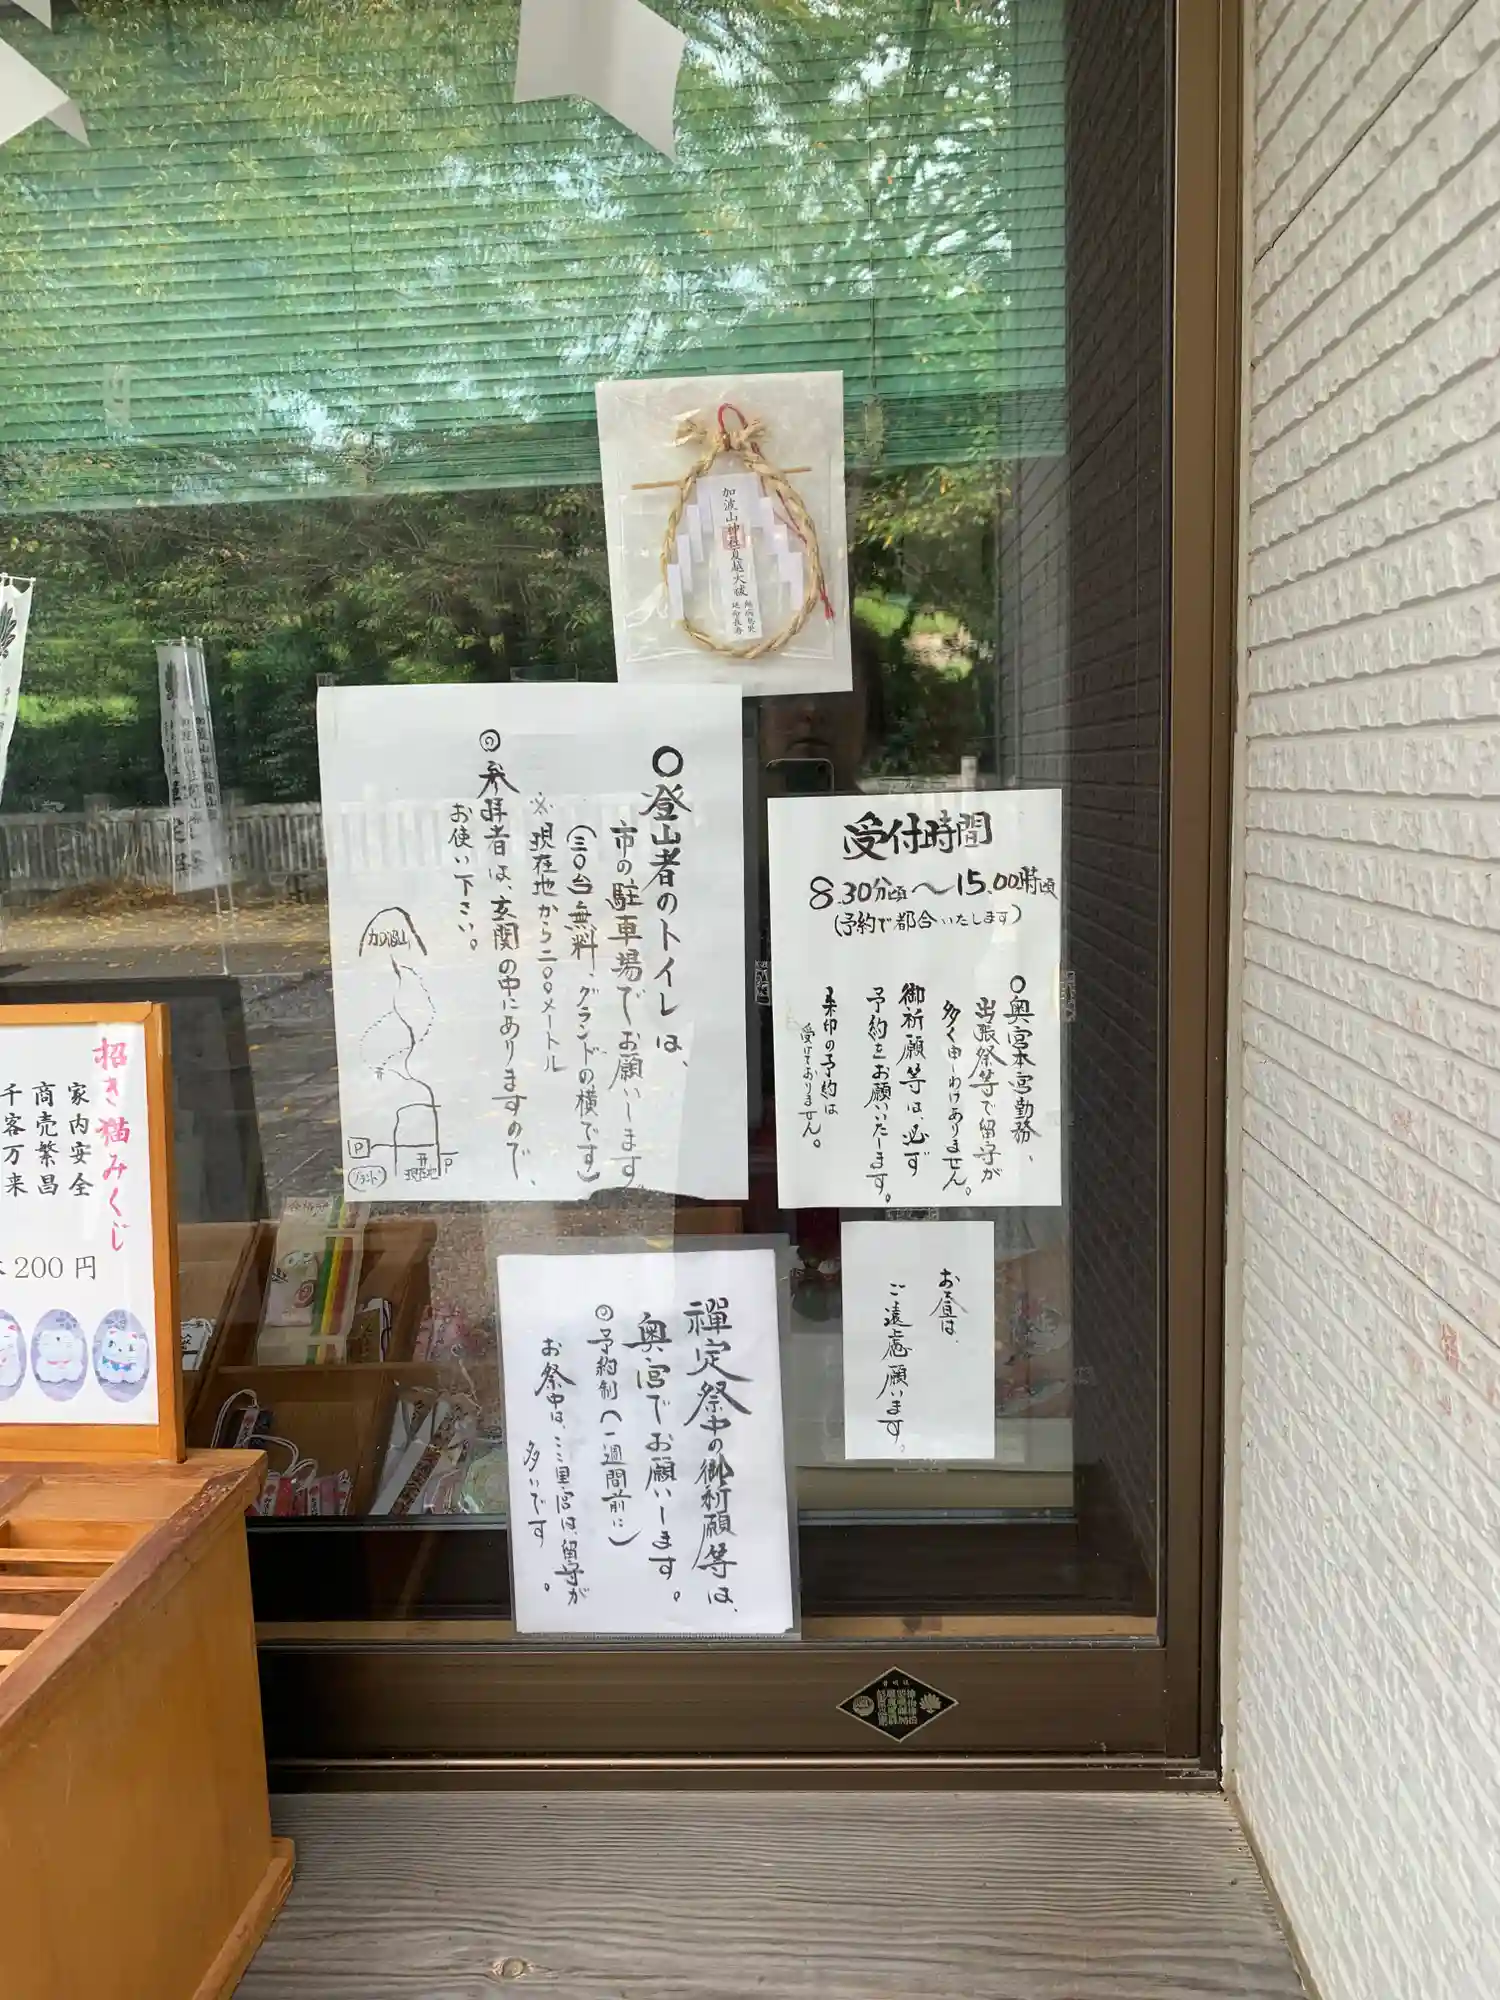 加波山神社夏越大祓
無病息災
延命長寿
〇登山者のトイレは、
市の駐車場でお願いします。
(三〇台無料、グランドの横です)
※現在地から二〇〇メートル
◎参拝者は、玄関の中にありますので、
お使い下さい。
加波山
P
グランド
現在地
P
受付時間
8.30分頃〜15.00時頃
(予約で都合いたします)
〇奥宮本宮勤務、
出張祭等で留守が
多く申しわけありません。
御祈願等は、必ず
予約をお願いいたします。
朱印の予約は
受けておりません。
お昼は、
ご遠慮願います。
禪定祭中の御祈願等は、
奥宮でお願いします。
◎予約制(一週間前に)
お祭中は、ここ里宮は、留守が
多いです。
招き猫みくじ
家内安全
商売繁昌
千客万来
200円